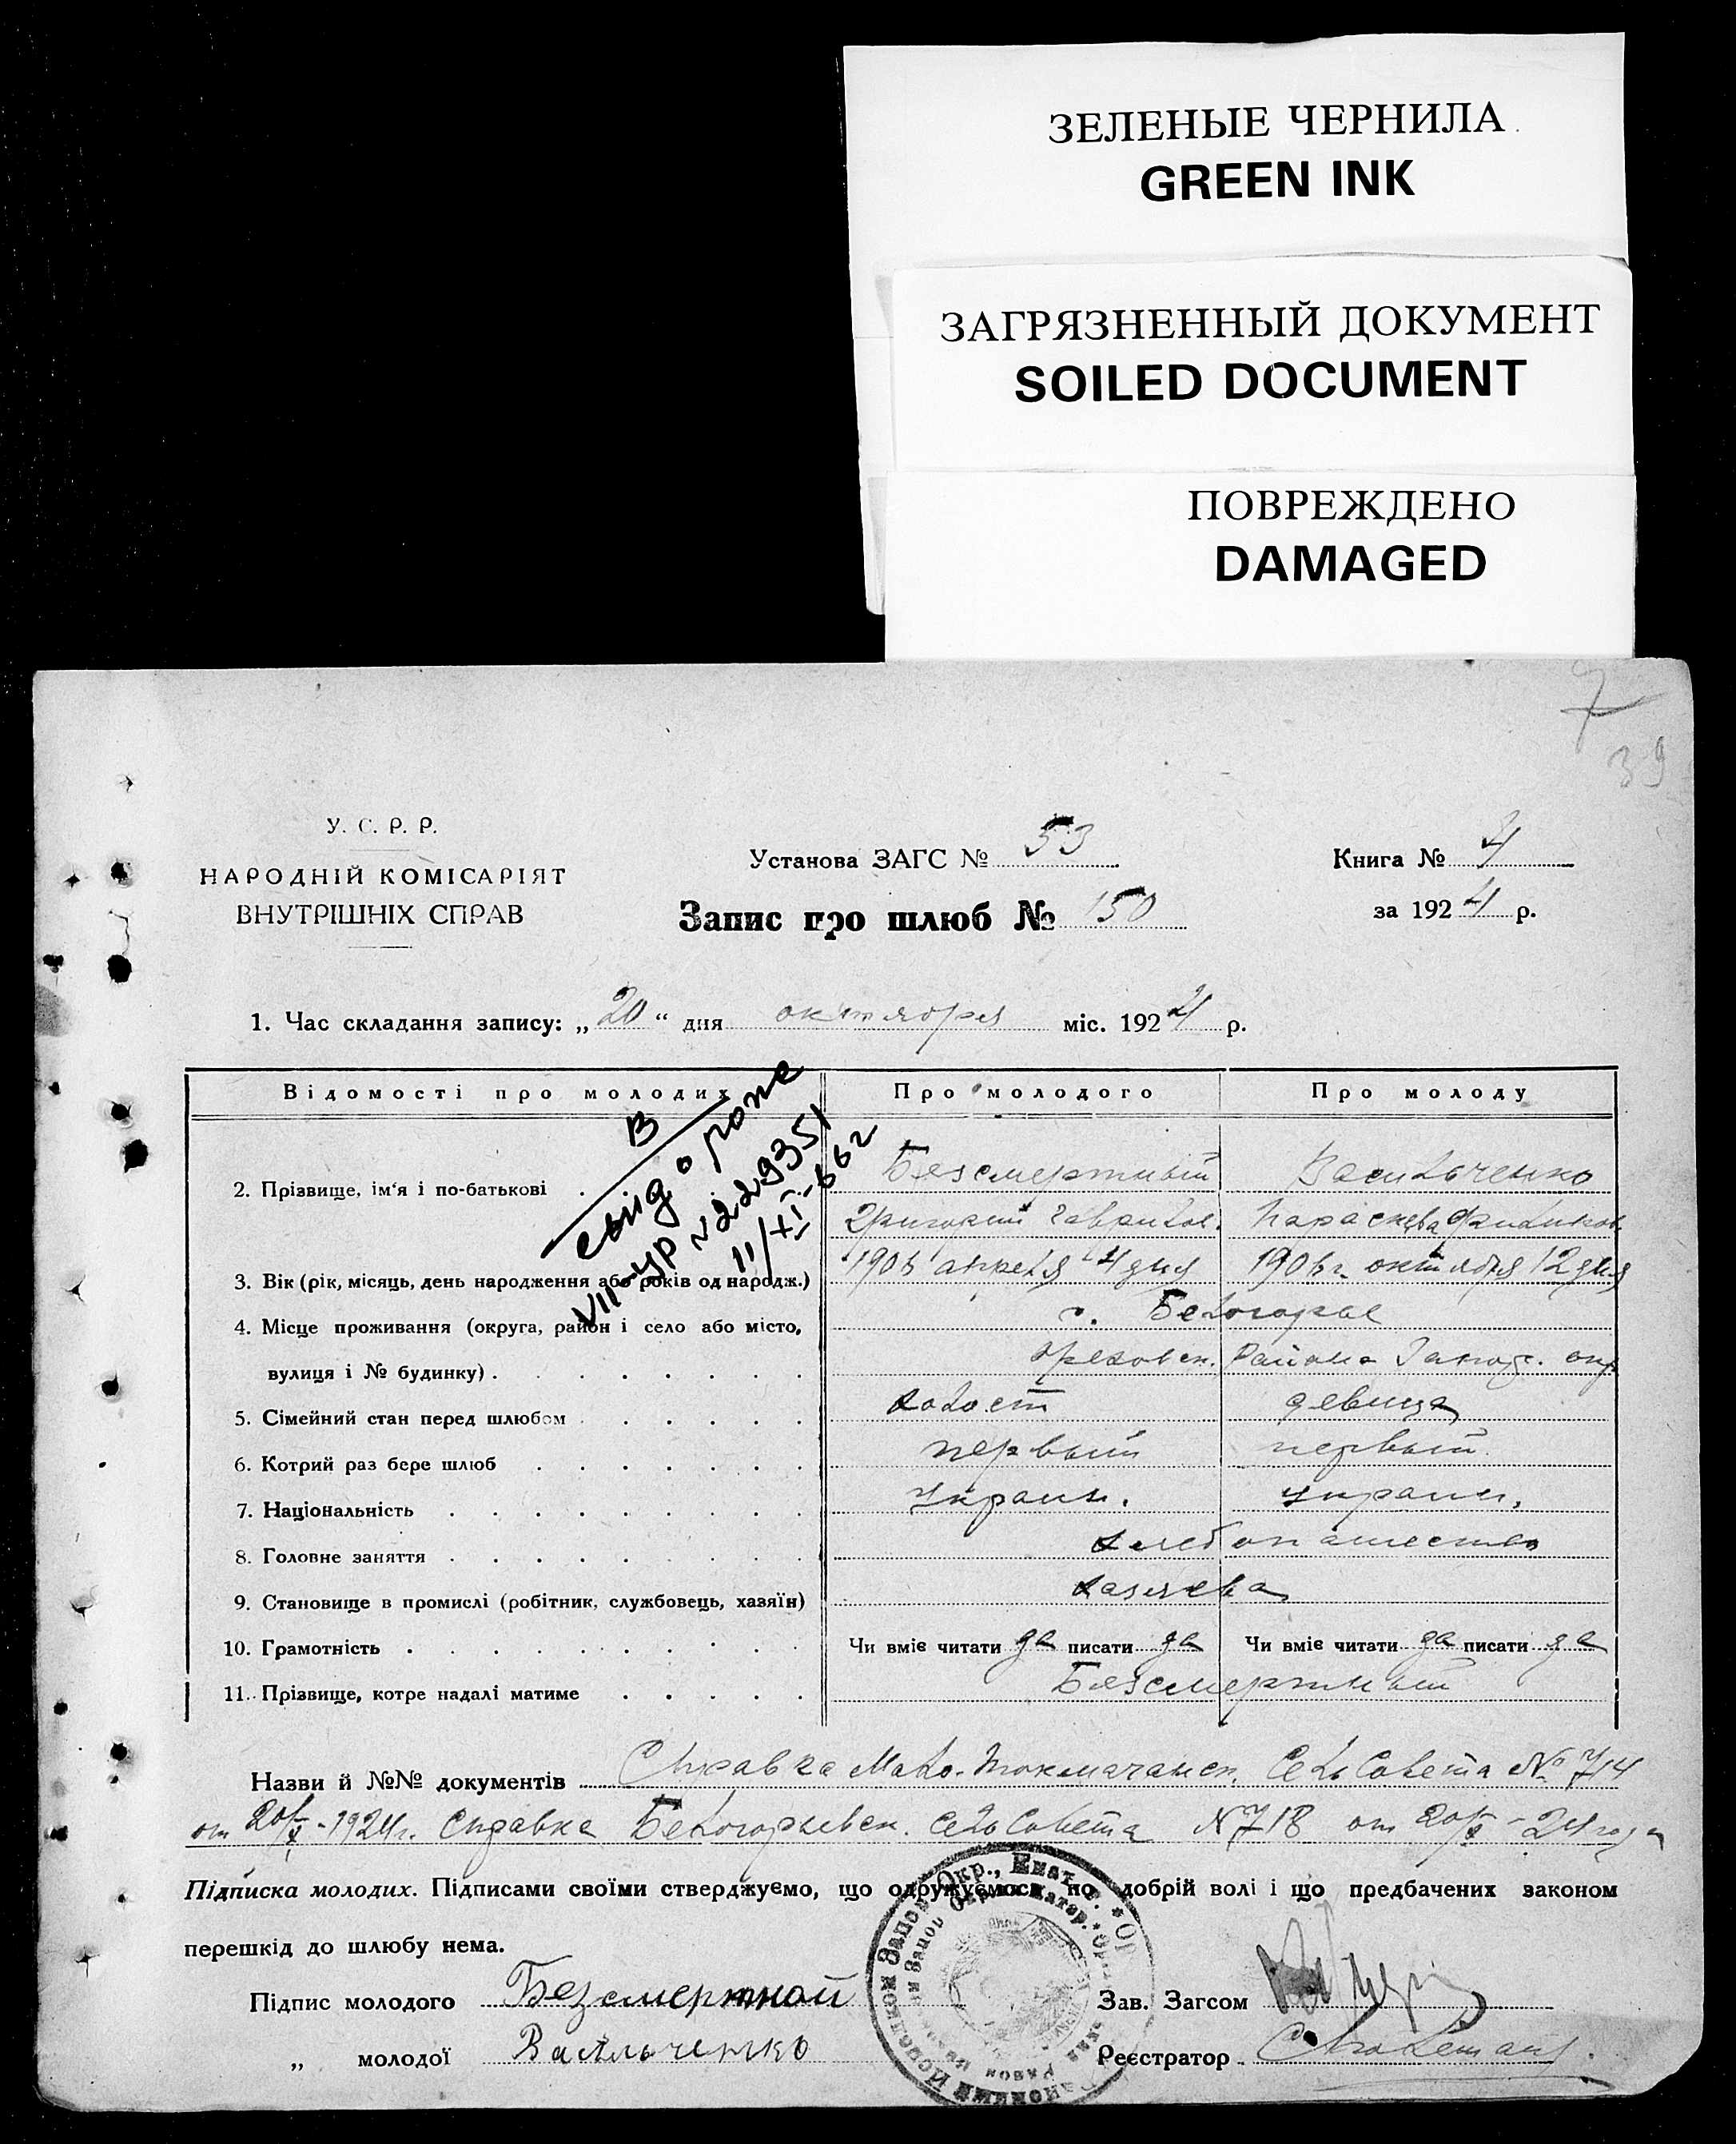 ЗЕЛЕНЫЕ ЧЕРНИЛА
GREEN INK
ЗАГРЯЗНЕННЫЙ ДОКУМЕНТ
SOILED DOCUMENT
ПОВРЕЖДЕНО
DAMAGED
7
39
У. С. Р. Р.
НАРОДНІЙ КОМІСАРІЯТ
ВНУТРІШНІХ СПРАВ
Установа ЗАГС № 53
Книга № 4
Запис про шлюб № 150
за 1924 р.
1. Час складання запису: „20“ дня октября міс. 1924 р.
Відомості про молодих Про молодого Про молоду
В
свид о рожд
VII-УР №229351
11/XI-66 г
2. Прізвище, ім'я і по-батькові Безсмертный Васильченко
Григорий Гаврилов. Параскева Филипов.
3. Вік (рік, місяць, день народження або років од народж.) апреля 4 дня октября 12 дня
4. Місце проживання (округа, район і село або місто, с. Белогорье
вулиця і № будинку) Орехов ск. Района Запор. окр
5. Сімейний стан перед шлюбом холост девица
6. Котрий раз бере шлюб первый первый
7. Національність украин. украин.
8. Головне заняття хлебопашество
9. Становище в промислі (робітник, службовець, хазяїн) хазяева
10. Грамотність Чи вміє читати да писати да Чи вміє читати да писати да
11. Прізвище, котре надалі матиме Безсмертный
Назви й №№ документів Справка Мало-Токмачанск. Сельсовета № 714
от 20/X-1924г. Справка Белогорьевск. Сельсовета №718 от 20/X-24 года
Підписка молодих. Підписами своїми стверджуємо, що одружуємося по добрій волі і що предбачених законом
перешкід до шлюбу нема.
Підпис молодого Безсмертной Зав. Загсом
„ молодої Васильченко Реєстратор